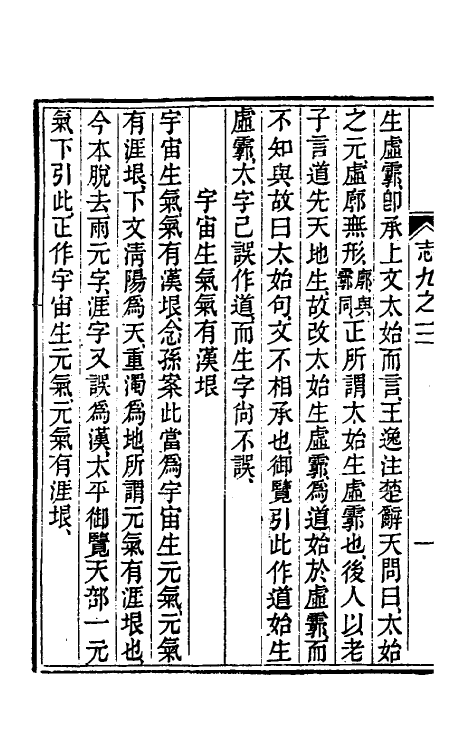 志九之三
一
生虛霩卽承上文太始而言王逸注楚辭天問曰太始
之元虛廓無形廓與霩同正所謂太始生虛霩也後人以老
子言道先天地生故改太始生虛霩爲道始於虛霩而
不知與故曰太始句文不相承也御覽引此作道始生
虛霩太字已誤作道而生字尙不誤、
宇宙生氣氣有漢垠
宇宙生氣氣有漢垠念孫案此當爲宇宙生元氣元氣
有涯垠、下文清陽爲天重濁爲地所謂元氣有涯垠也
今本脫去兩元字涯字又誤爲漢太平御覽天部一元
氣下引此正作宇宙生元氣元氣有涯垠、